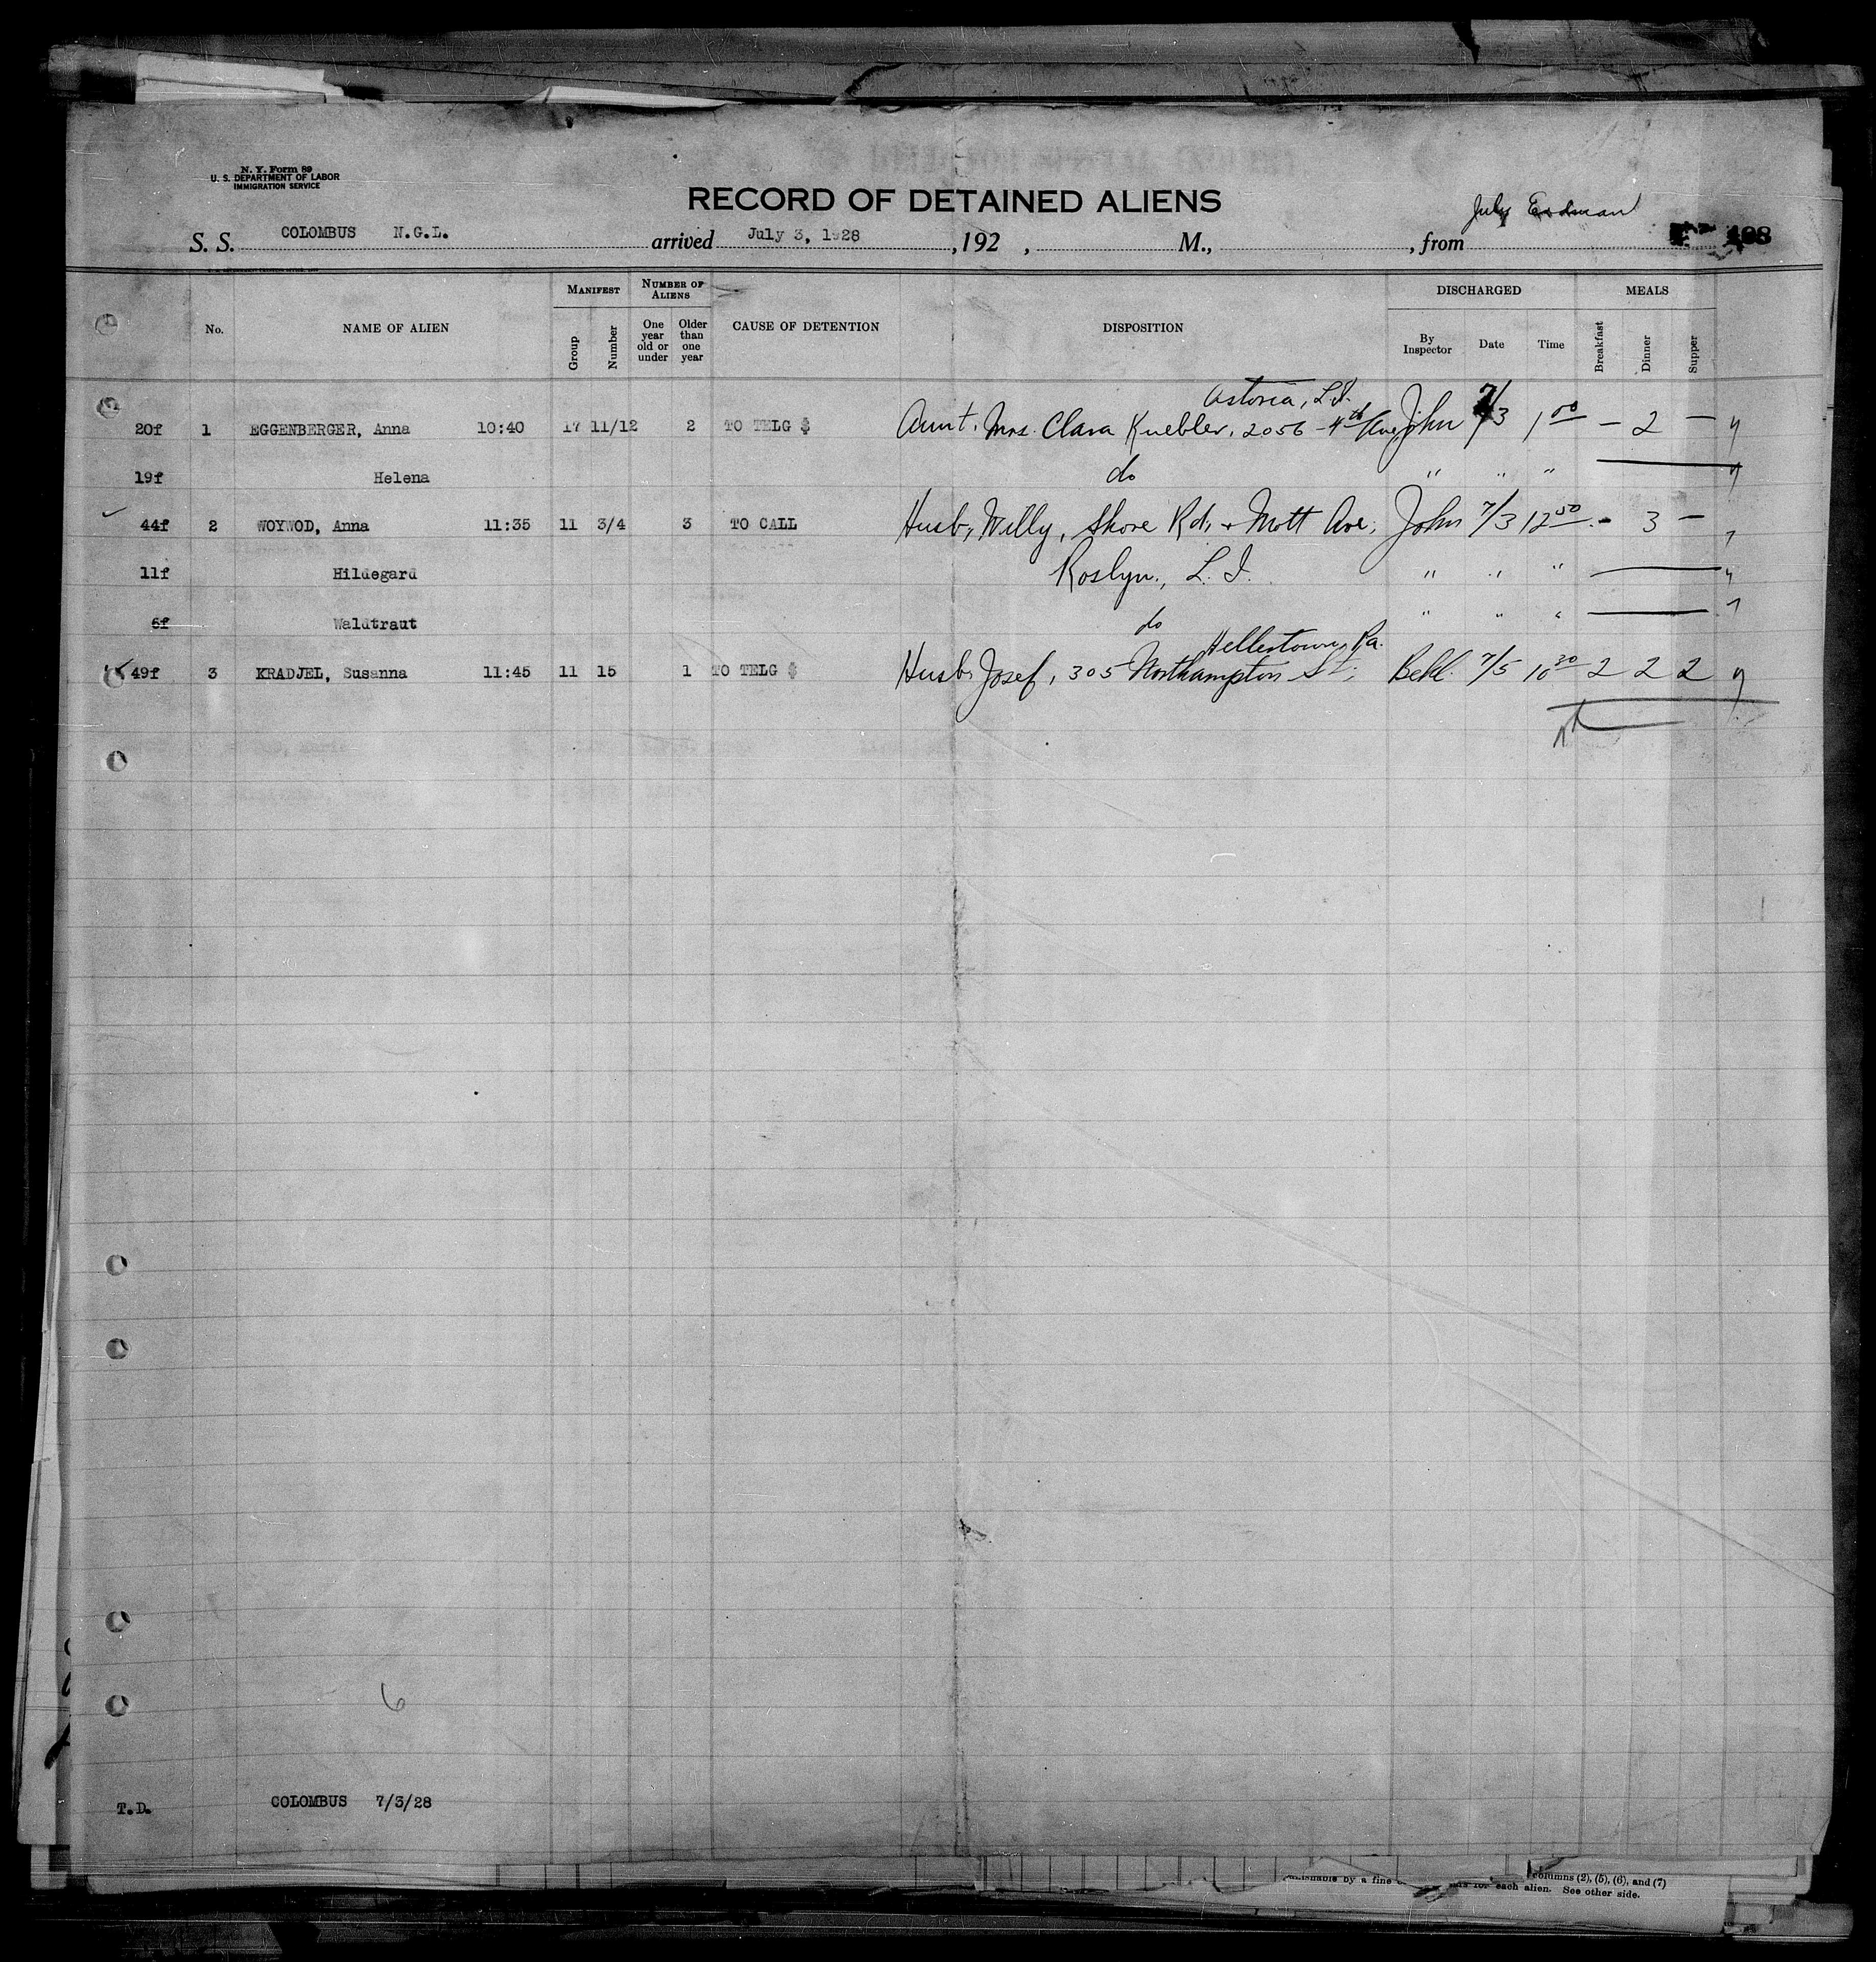 N. Y. Form 89
U. S. DEPARTMENT OF LABOR
IMMIGRATION SERVICE
RECORD OF DETAINED ALIENS
July Erdman
S. S. COLOMBUS N.G.L. arrived July 3, 1928, 192 , M., , from 498
No. NAME OF ALIEN MANIFEST Group Number NUMBER OF ALIENS One year old or under Older than one year CAUSE OF DETENTION DISPOSITION DISCHARGED By Inspector Date Time MEALS Breakfast Dinner Supper
Astoria, L.I.
20f 1 EGGENBERGER, Anna 10:40 17 11/12 2 TO TELG $ Aunt, Mrs. Clara Kuebler, 2056 - 4th Ave John 7/3 1 00 — 2 —
19f Helena do " " "
44f 2 WOYWOD, Anna 11:35 11 3/4 3 TO CALL Husb, Willy, Shore Rd, + Mott Ave, John 7/3 12 50 - 3 —
11f Hildegard Roslyn, L. I. " " "
6f Waldtraut do " " "
Hellertown, Pa.
49f 3 KRADJEL, Susanna 11:45 11 15 1 TO TELG $ Husb, Josef, 305 Northampton St, 7/5 10 30 2 2 2
6
T.D. COLOMBUS 7/3/28
columns (2), (5), (6), and (7)
by a fine for each alien. See other side.